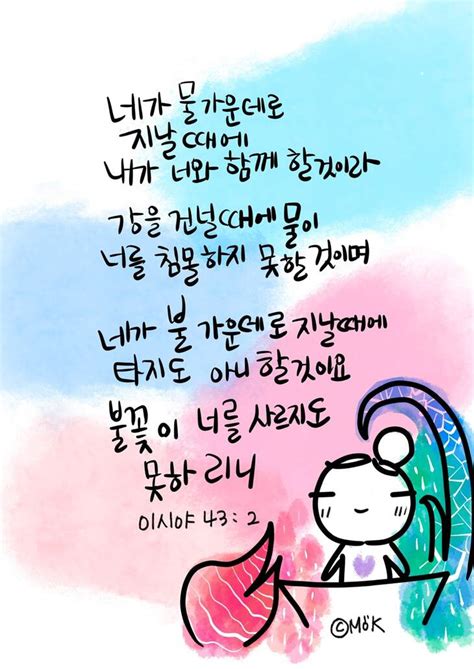 네가 물 가운데로
지날 때에
내가 너와 함께 할것이라
강을 건널 때에 물이
너를 침몰하지 못할 것이며
네가 불 가운데로 지날때에
타지도 아니 할것이요
불꽃이 너를 사르지도
못하 리니
이시야 43 : 2
©MöK